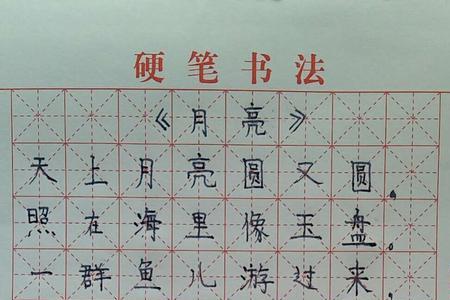 硬笔书法
《月亮》
天上月亮圆又圆,
照在海里像玉盘.
一群鱼儿游过来,